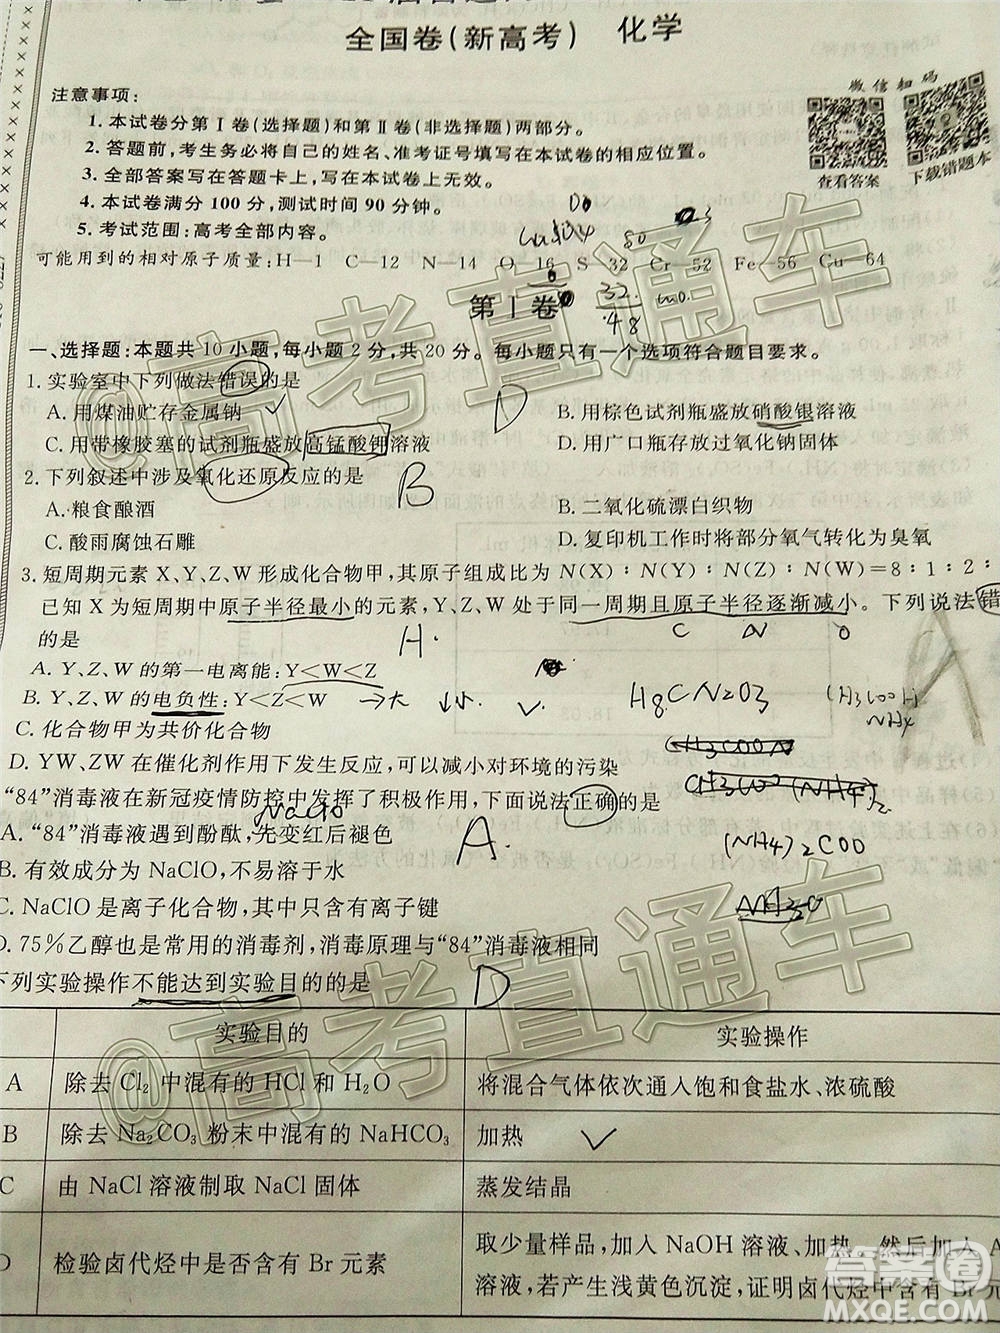 全国卷(新高考) 化学
微信扫码
查看答案
下载错题本
注意事项:
1.本试卷分第Ⅰ卷(选择题)和第Ⅱ卷(非选择题)两部分。
2.答题前,考生务必将自己的姓名、准考证号填写在本试卷的相应位置。
3.全部答案写在答题卡上,写在本试卷上无效。
4.本试卷满分 100 分,测试时间 90 分钟。
5.考试范围:高考全部内容。
可能用到的相对原子质量:H—1 C—12 N—14 O—16 S—32 Cr—52 Fe—56 Cu—64
第Ⅰ卷
32
48
一、选择题:本题共 10 小题,每小题 2 分,共 20 分。每小题只有一个选项符合题目要求。
1.实验室中下列做法错误的是 D
A.用煤油贮存金属钠 B.用棕色试剂瓶盛放硝酸银溶液
C.用带橡胶塞的试剂瓶盛放高锰酸钾溶液 D.用广口瓶存放过氧化钠固体
2.下列叙述中涉及氧化还原反应的是 B
A.粮食酿酒 B.二氧化硫漂白织物
C.酸雨腐蚀石雕 D.复印机工作时将部分氧气转化为臭氧
3.短周期元素 X、Y、Z、W 形成化合物甲,其原子组成满足 N(X)∶N(Y)∶N(Z)∶N(W)=8∶1∶2∶
已知 X 为短周期中原子半径最小的元素,Y、Z、W 处于同一周期且原子半径逐渐减小。下列说法错
的是 H C N O
A.Y、Z、W 的第一电离能:Y<W<Z
B.Y、Z、W 的电负性:Y<Z<W →大 ↓小
H8CN2O3
C.化合物甲为共价化合物
D.YW、ZW 在催化剂作用下发生反应,可以减小对环境的污染
“84”消毒液在新冠疫情防控中发挥了积极作用,下面说法正确的是 A
NaClO
A.“84”消毒液遇到酚酞,先变红后褪色
(NH4)2COO
B.有效成分为 NaClO,不易溶于水
C.NaClO 是离子化合物,其中只含有离子键
D.75%乙醇也是常用的消毒剂,消毒原理与“84”消毒液相同
下列实验操作不能达到实验目的的是 D
实验目的 实验操作
A 除去 Cl2 中混有的 HCl 和 H2O 将混合气体依次通入饱和食盐水、浓硫酸
B 除去 Na2CO3 粉末中混有的 NaHCO3 加热
C 由 NaCl 溶液制取 NaCl 固体 蒸发结晶
D 检验卤代烃中是否含有 Br 元素 取少量样品,加入 NaOH 溶液、加热,然后加入 A
溶液,若产生浅黄色沉淀,证明卤代烃中含有 Br 元
@高考直通车
@高考直通车
答案圈
MXQE.COM